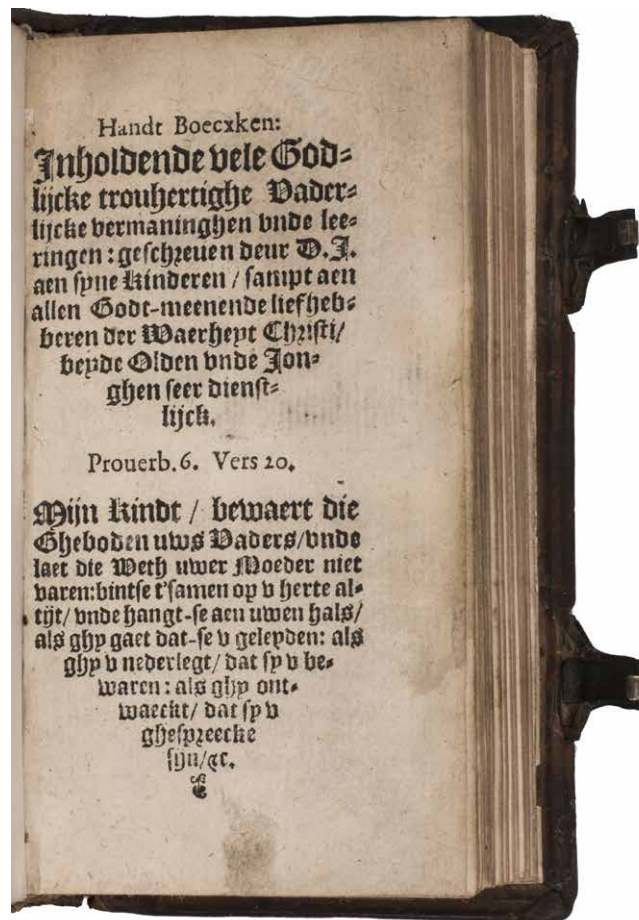 Handt Boecxken:
Inholdende vele God-
lijcke trouhertighe Vader-
lijcke vermaninghen vnde lee-
ringen : geschreuen deur D.J.
aen syne kinderen / sampt aen
allen Godt-meenende liefheb-
beren der Waerheyt Christi/
beyde Olden vnde Jon-
ghen seer dienst-
lijck.
Prouerb.6. Vers 20.
Mijn kindt / bewaert die
Gheboden uws Vaders/vnde
laet die Weth uwer Moeder niet
varen:bintse t'samen op v herte al-
tijt/ vnde hangt-se aen uwen hals/
als ghy gaet dat-se v geleyden: als
ghy v nederlegt/ dat sy v be-
waren : als ghy ont-
waeckt/ dat sy v
ghespreecke
sijn/&c.